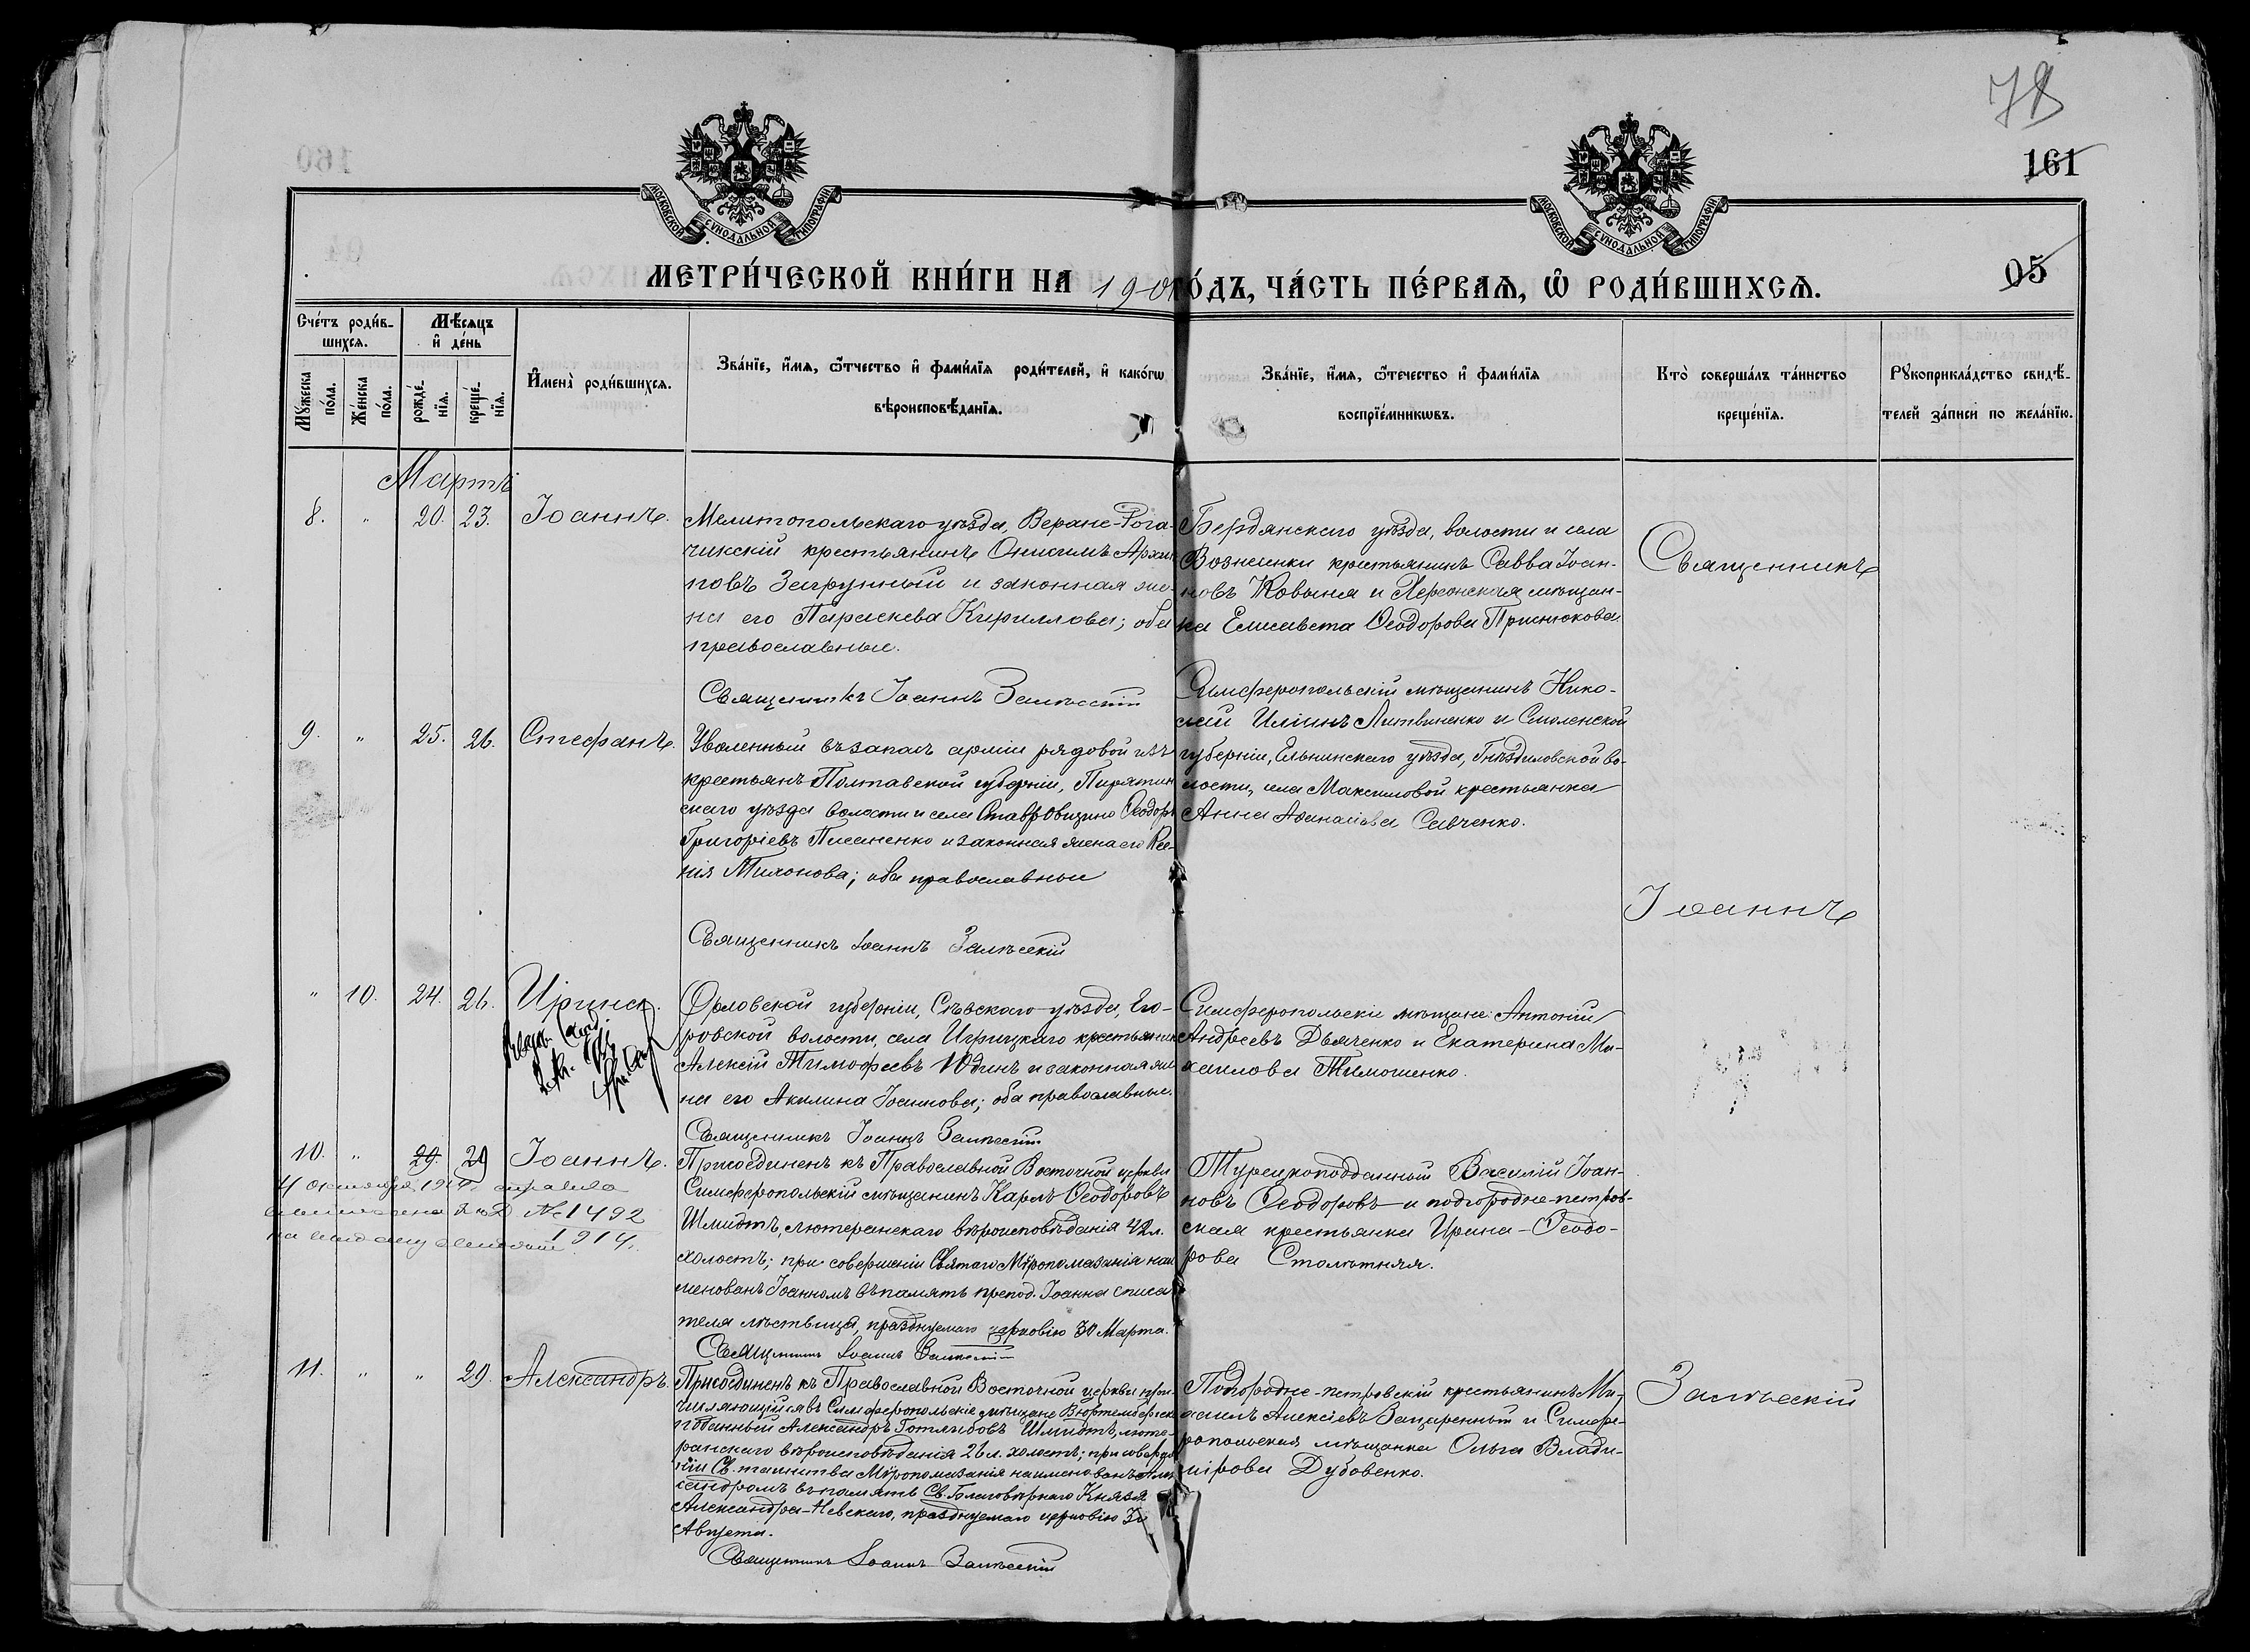 78
161
05
МОСКОВСКОЙ СѴНОДАЛЬНОЙ ТИПОГРАФІИ
МОСКОВСКОЙ СѴНОДАЛЬНОЙ ТИПОГРАФІИ
МЕТРИ́ЧЕСКОЙ КНИ́ГИ НА 1901 ГО́ДЪ, ЧА́СТЬ ПЕ́РВАЯ, Ѡ РОДИ́ВШИХСЯ.
Счётъ роди́в-
шихся.
Мѣ́сяцъ
и де́нь
Му́жеска по́ла.
Же́нска по́ла.
рожде́-
нїя.
креще́-
нїя.
Имена̀ роди́вшихся.
Зва́нїе, и́мя, ѻ́тчество и фами́лїя роди́телей, и како́гѡ
вѣроисповѣ́данїя.
Зва́нїе, и́мя, ѻ́течество и фами́лїя
воспрїе́мникѡвъ.
Кто̀ соверша́лъ та́инство
креще́нїя.
Рукоприкла́дство свидѣ́-
телей за́писи по жела́нїю.
Мартъ
8. " 20. 23. Іоаннъ.
Мелитопольскаго уѣзда, Верхне-Рога-
чикскій крестьянинъ Онисимъ Архип-
повъ Загрунный и законная же-
на его Параскева Кириллова; оба
православные.
Священникъ Іоаннъ Залѣсскій
Бердянскаго уѣзда, волости и села
Вознесенки крестьянинъ Савва Іоан-
новъ Ковыня и Херсонская мѣщан-
ка Елисавета Ѳеодорова
Священникъ
9. " 25. 26. Стефанъ.
Уволенный въ запасъ арміи рядовой изъ
крестьянъ Полтавской губерніи, Пирятин
скаго уѣзда волости и села Ѳеодоръ
Григоріевъ Писаненко и законная жена его Ксе-
нія Тихонова; оба православные
Священникъ Іоаннъ Залѣсскій
Симферопольскій мѣщанинъ Нико-
лай Иліинъ Литвиненко и Смоленской
губерніи, Ельнинскаго уѣзда, Гнѣздиловской во-
лости, села Максимовой крестьянка
Анна Аѳанасіева Савченко.
Іоаннъ
" 10. 24. 26. Ирина.
Орловской губерніи, Сѣвскаго уѣзда, Его-
ровской волости, села Игрицкаго крестьянинъ
Алексій Тимофеевъ Юдинъ и законная же
на его Акилина Іоаннова; оба православные.
Священникъ Іоаннъ Залѣсскій
Симферопольскіе мѣщане: Антоній
Андреевъ Дьяченко и Екатерина Ми-
хаилова Тимошенко.
10. " 29. 29 Іоаннъ.
4 октября 1914 г.
№ 1492
1914 г.
Присоединенъ къ Православной Восточной церкви
Симферопольскій мѣщанинъ Карлъ Ѳеодоровъ
Шмидтъ, лютеранскаго вѣроисповѣданія 42 л.
холостъ; при совершеніи Святаго Мѵропомазанія наи
менованъ Іоанномъ въ память препод. Іоанна списа
теля лѣствицы, празднуемаго церковію 30 Марта.
Священникъ Іоаннъ Залѣсскій
Турецкоподданный Василій Іоан-
новъ Ѳеодоровъ и подгородне-петров-
ская крестьянка Ирина Ѳеодо-
рова Столѣтняя.
11. " " 29. Александръ.
Присоединенъ къ Православной Восточной церкви при-
числяющійся въ Симферопольскіе мѣщане Вюртембергск
подданный Александръ Готлибовъ Шмидтъ, люте-
ранскаго вѣроисповѣданія 26 л. холостъ; при соверше
ніи Св. таинства Мѵропомазанія наименованъ Але
ксандромъ въ память Св. Благовѣрнаго Князя
Александра-Невскаго, празднуемаго церковію 30
Августа.
Священникъ Іоаннъ Залѣсскій
Подгородне-петровскій крестьянинъ Ми-
хаилъ Алексіевъ и Симфе-
ропольская мѣщанка Ольга Влади-
мірова Дубовенко.
Залѣсскій